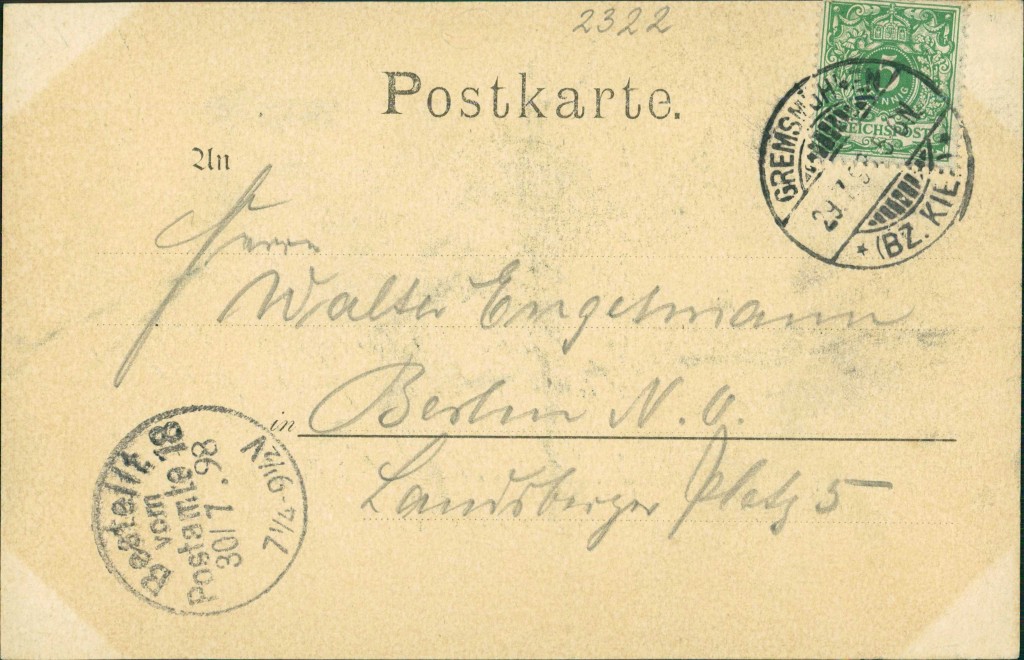 2322
Postkarte.
An
5
PFENNIG
REICHSPOST
GREMSMÜHLEN
29.7.98
* (BZ. KIEL)
Herrn
Walter Engelmann
in Berlin N. O.
Landsberger Platz 5
Bestellt
vom
Postamte 18
30/7.98
7¼-9½V